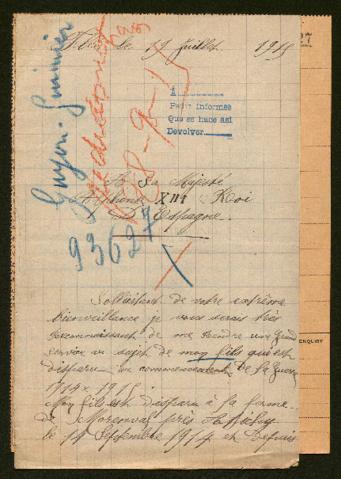 le 19 juillet 1915
1
Parte informes
Que se hace así
Devolver
Guyon-Guinier
A Sa Majesté
Alphonse XIII Roi
D'Espagne
93627
Sollicitant de votre extrême
bienveillance je vous serais très
reconnaissant de me rendre un Grand
Service au sujet de mon fils qui est
disparu au commencement de la Guerre
1914 1915
Mon fils est disparu à la ferme
de près
le 14 Septembre 1914 et Depuis